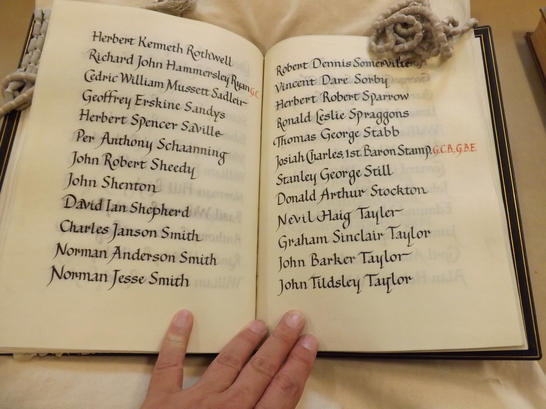 Herbert Kenneth Rothwell
Richard John Hammersley Ryan G.C.
Cedric William Mussett Sadleir
Geoffrey Erskine Sandys
Herbert Spencer Saville
Per Anthony Schaanning
John Robert Sheedy
John Shenton
David Ian Shepherd
Charles Janson Smith
Norman Anderson Smith
Norman Jesse Smith
Robert Dennis Somerville
Vincent Dare Sorby
Herbert Robert Sparrow
Ronald Leslie Spraggons
Thomas George Stabb
Josiah Charles, 1st. Baron Stamp, G.C.B., G.B.E.
Stanley George Still
Donald Arthur Stockton
Nevil Haig Tayler
Graham Sinclair Taylor
John Barker Taylor
John Tildsley Taylor